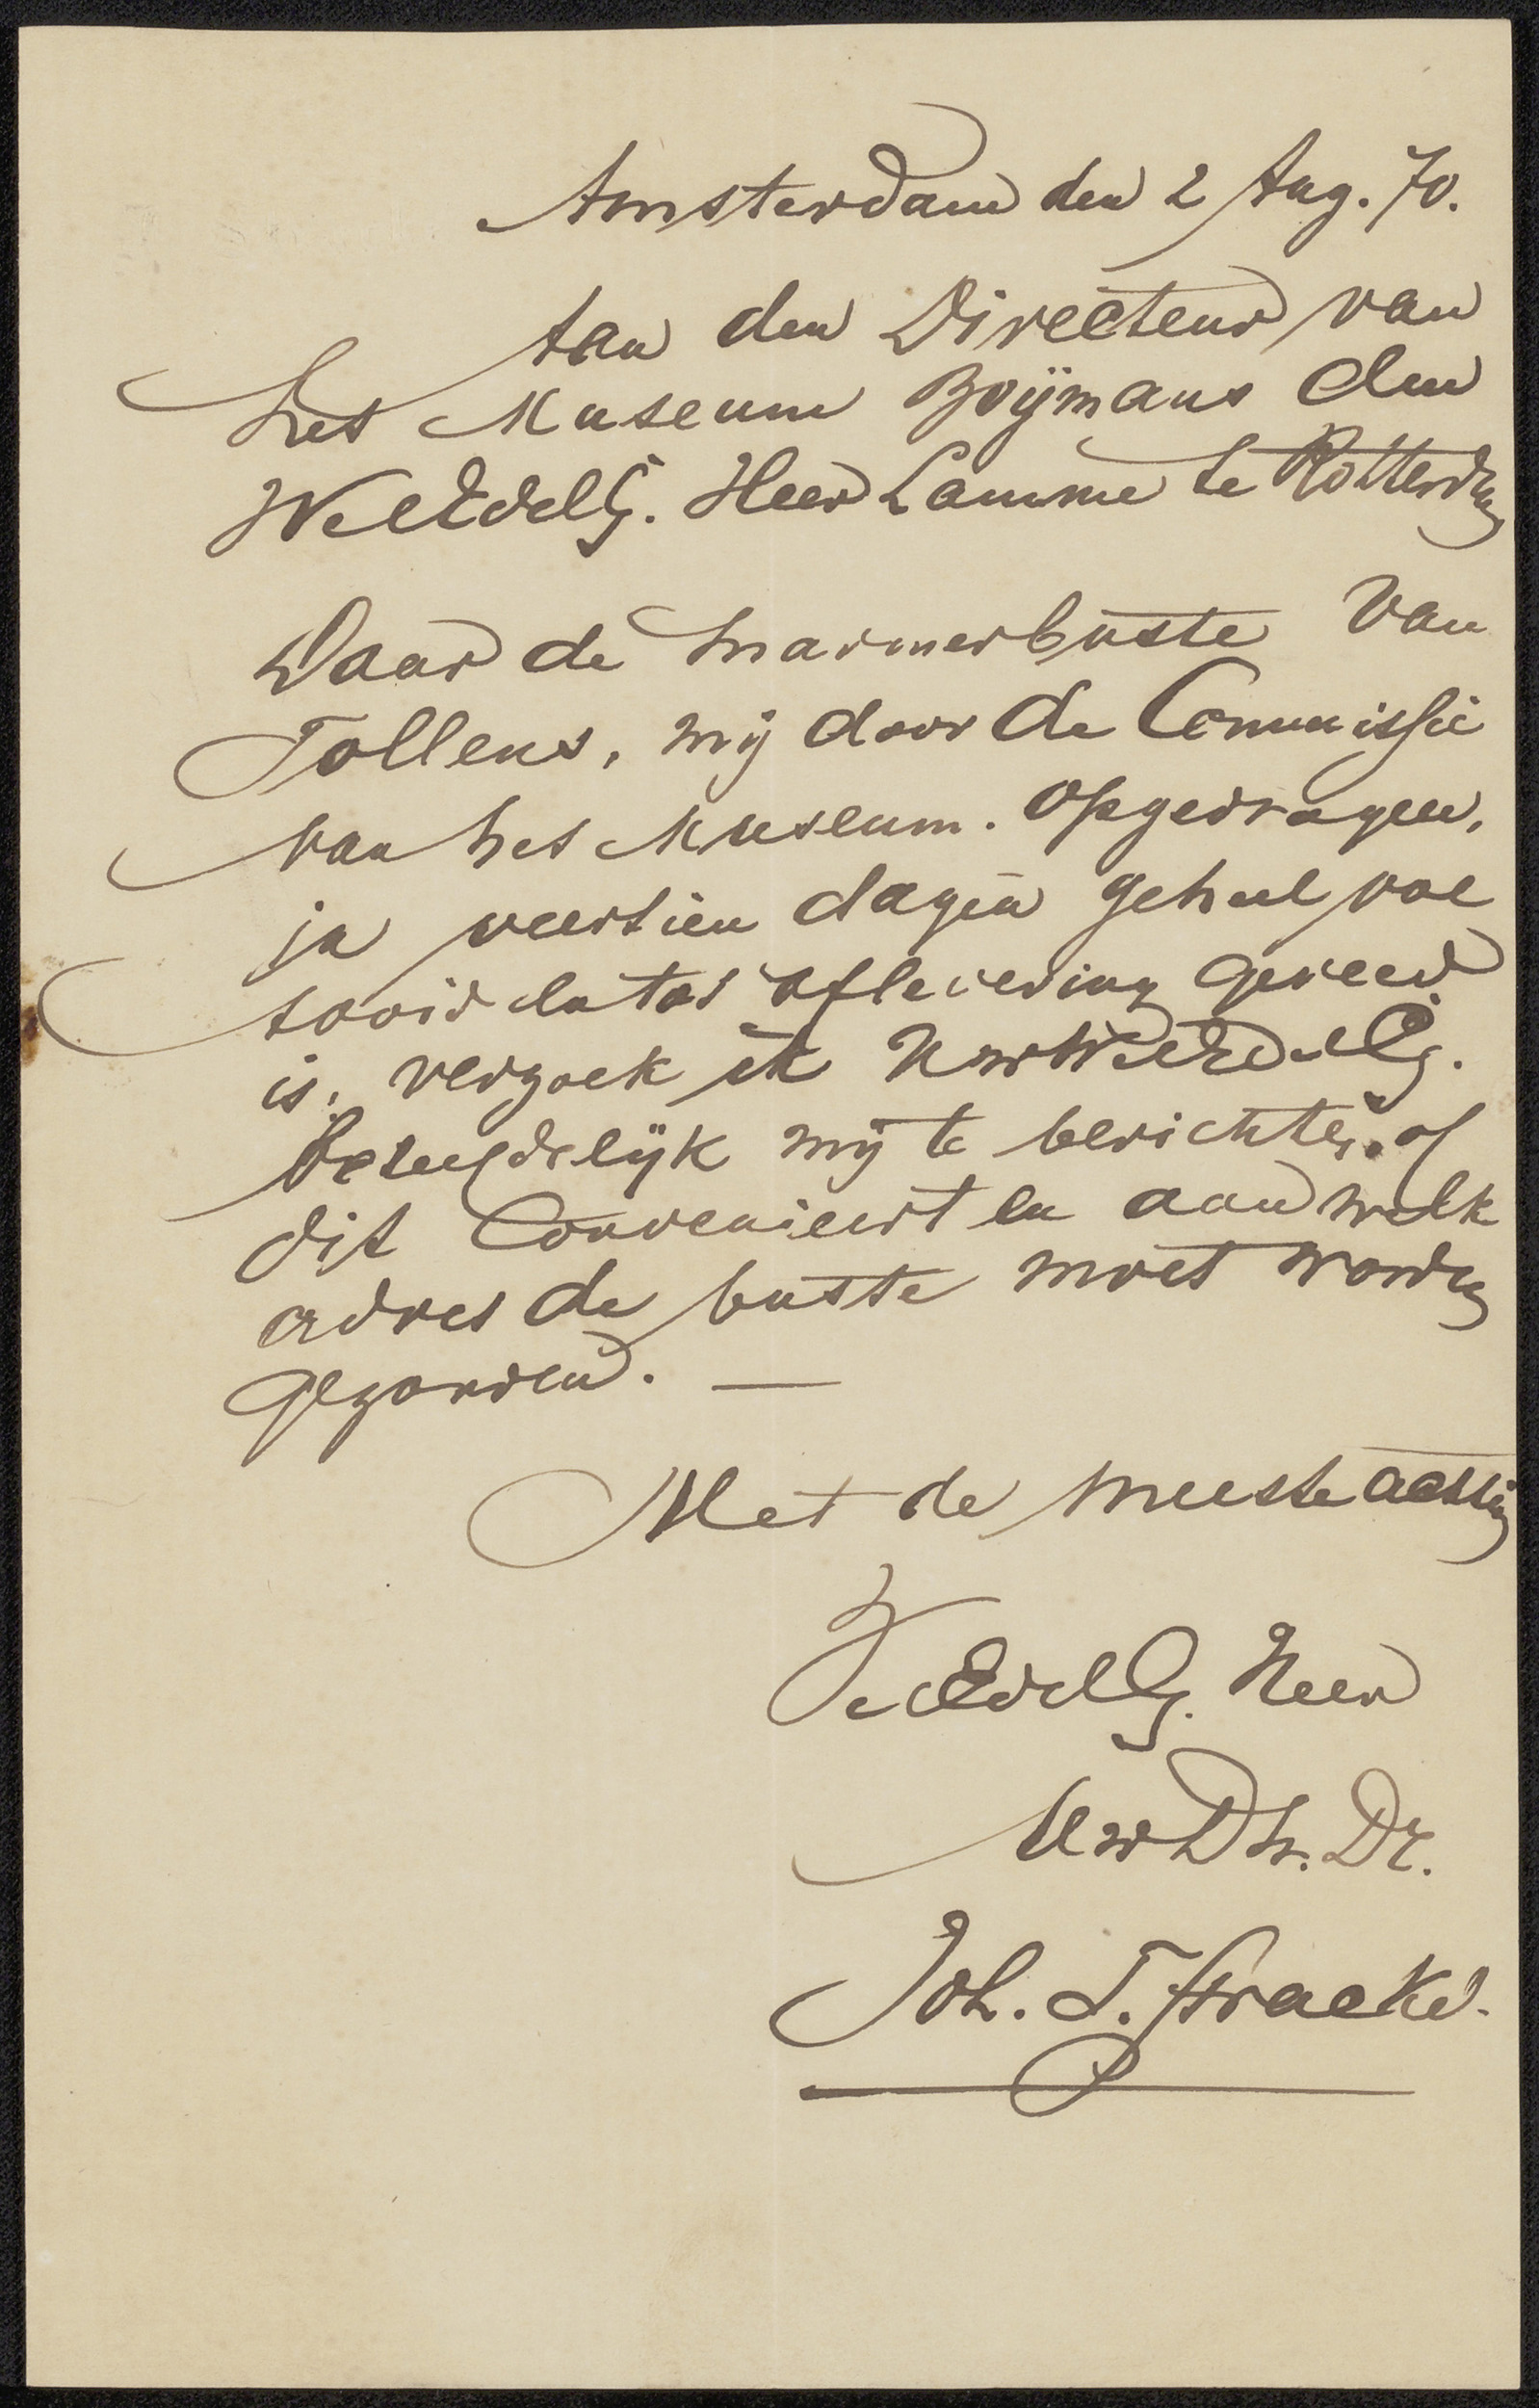 Amsterdam den 2 Aug. 70.
Aan den Directeur van
het Museum Boÿmans den
WelEdelG. Heer Lamme te Rotterdam
Daar de marmerbuste van
Tollens, mij door de Commissie
van het Museum. opgedragen,
in veertien dagen geheel vol
tooid en tot aflevering gereed
is, verzoek ik UwWelEdelG.
beleefdelijk mij te berichten of
dit Convenieert en aan welk
adres de buste moet worden
gezonden. —
Met de meeste achting
WelEdelG. Heer
Uw Dw. Dr.
Joh. T. Stracké.